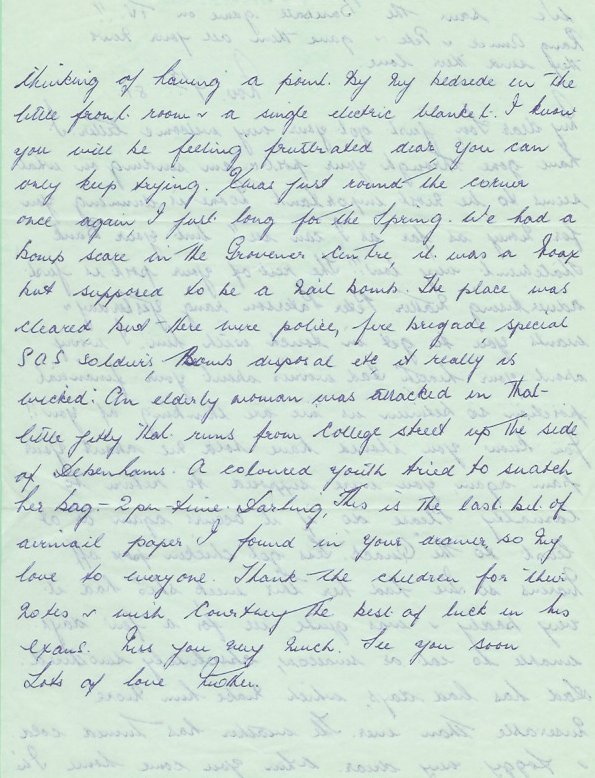 thinking of having a point. By my bedside in the
little front room & a single electric blanket. I know
you will be feeling frustrated dear you can
only keep trying. Xmas just round the corner
once again, I just long for the Spring. We had a
bomb scare in the Grovener Centre, it was a hoax
but supposed to be a nail bomb. The place was
cleared but there were police, fire brigade special
SAS soldiers, Bomb disposal etc, it really is
wicked. An elderly woman was attacked in that
little jitty that runs from College Street up the side
of Debenhams. A coloured youth tried to snatch
her bag - 2pm - time. Darling, This is the last bit of
airmail paper I found in your drawer so my
love to everyone. Thank the children for their
notes & wish Courtney the best of luck in his
exams. Miss you very much. See you soon
Lots of love Mother.